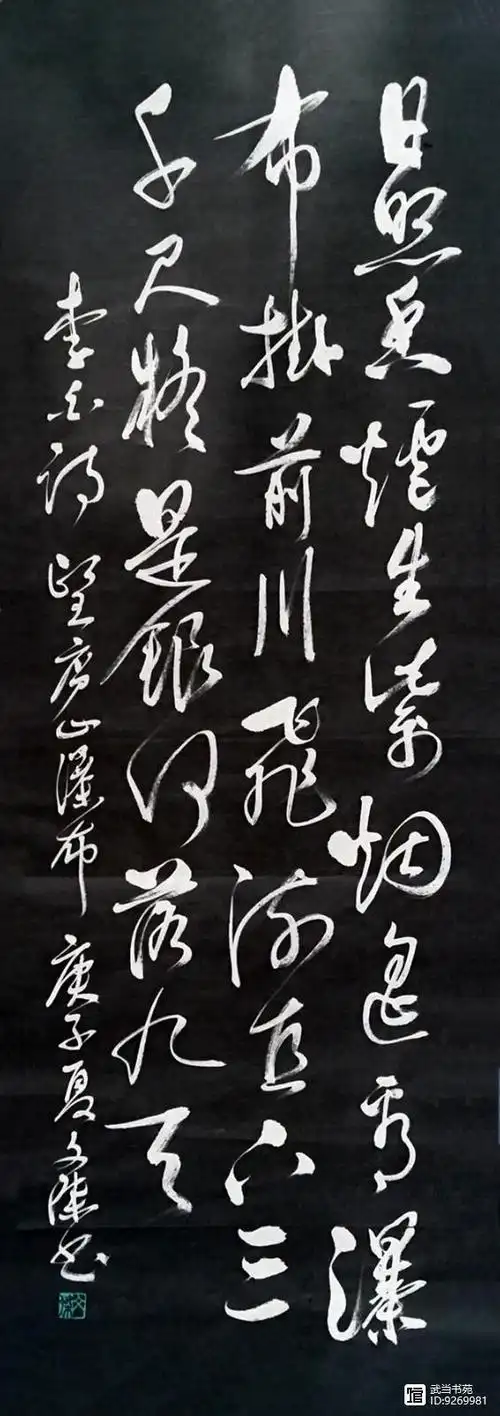 日照香爐生紫烟遥看瀑
布掛前川飛流直下三
千尺疑是銀河落九天
李白詩 望庐山瀑布 庚子夏文傑书
武当书苑
ID:9269981